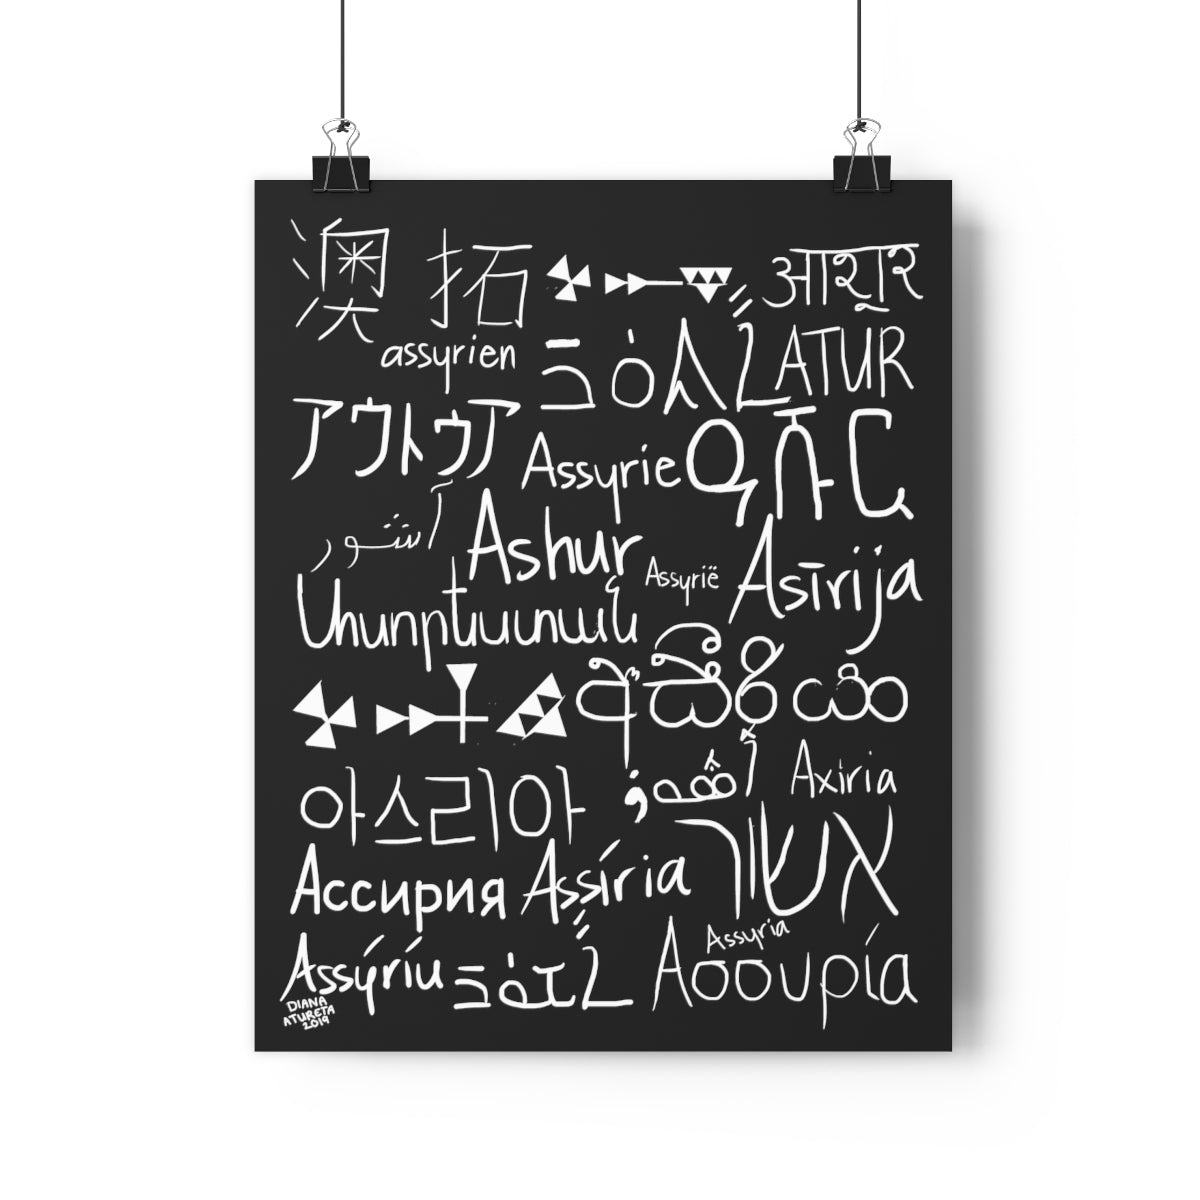 澳拓 आशूर
assyrien ATUR
アウトゥア Assyrie
آشور Ashur Assyrië Asīrija
아스리아 Axiria
Ассирия Assíria אשור
Assýríu Assyria Ασσυρία
DIANA
ATURETA
2019